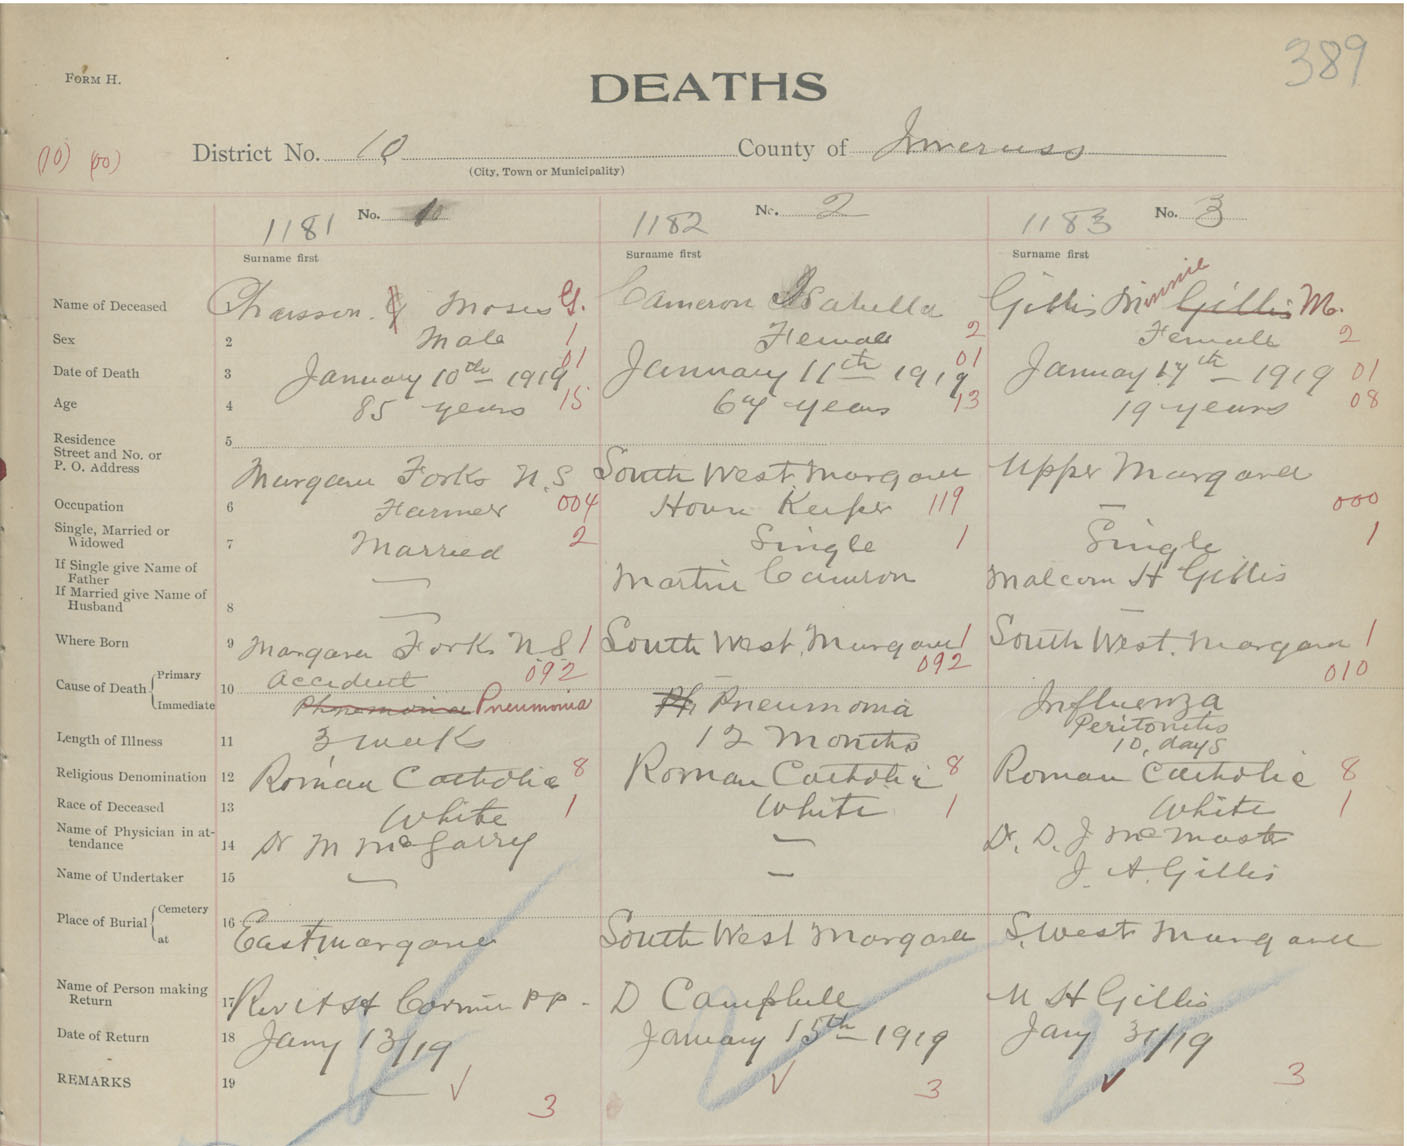 389
FORM H.
DEATHS
(10) (00)
District No. 10 County of Inverness
(City, Town or Municipality)
1181 No. 1182 No. 2 1183 No. 3
Surname first Surname first Surname first
Name of Deceased Chaisson Moses G. Cameron Isabella Gillis Minnie Gillis M.
Sex 2 Male 1 Female 2 Female 2
Date of Death 3 January 10th 1919 01 January 11th 1919 01 January 17th 1919 01
Age 4 85 years 15 67 years 13 19 years 08
Residence 5
Street and No. or
P. O. Address Margaree Forks N.S South West Margaree Upper Margaree
Occupation 6 Farmer 004 House Keeper 119 — 000
Single, Married or
Widowed 7 Married 2 Single 1 Single 1
If Single give Name of
Father — Martin Cameron Malcom H Gillis
If Married give Name of
Husband 8 — —
Where Born 9 Margaree Forks N.S. 1 South West Margaree 1 South West Margaree 1
092 092 010
Cause of Death Primary 10 Accident — Influenza
Immediate Phnemonia Pneumonia Ph Pneumonia Peritonitis
Length of Illness 11 3 weeks 12 Months 10, days
Religious Denomination 12 Roman Catholic 8 Roman Catholic 8 Roman Catholic 8
Race of Deceased 13 White 1 White 1 White 1
Name of Physician in at-
tendance 14 Dr M McGarry — Dr. D. J McMaster
Name of Undertaker 15 — — J. A. Gillis
Place of Burial Cemetery 16
at East Margaree South West Margaree S. West Margaree
Name of Person making
Return 17 Rev A H Cormier P P - D Campbell M H Gillis
Date of Return 18 Jany 13/19 January 15th 1919 Jany 31/19
REMARKS 19 — √ 3 √ 3 √ 3